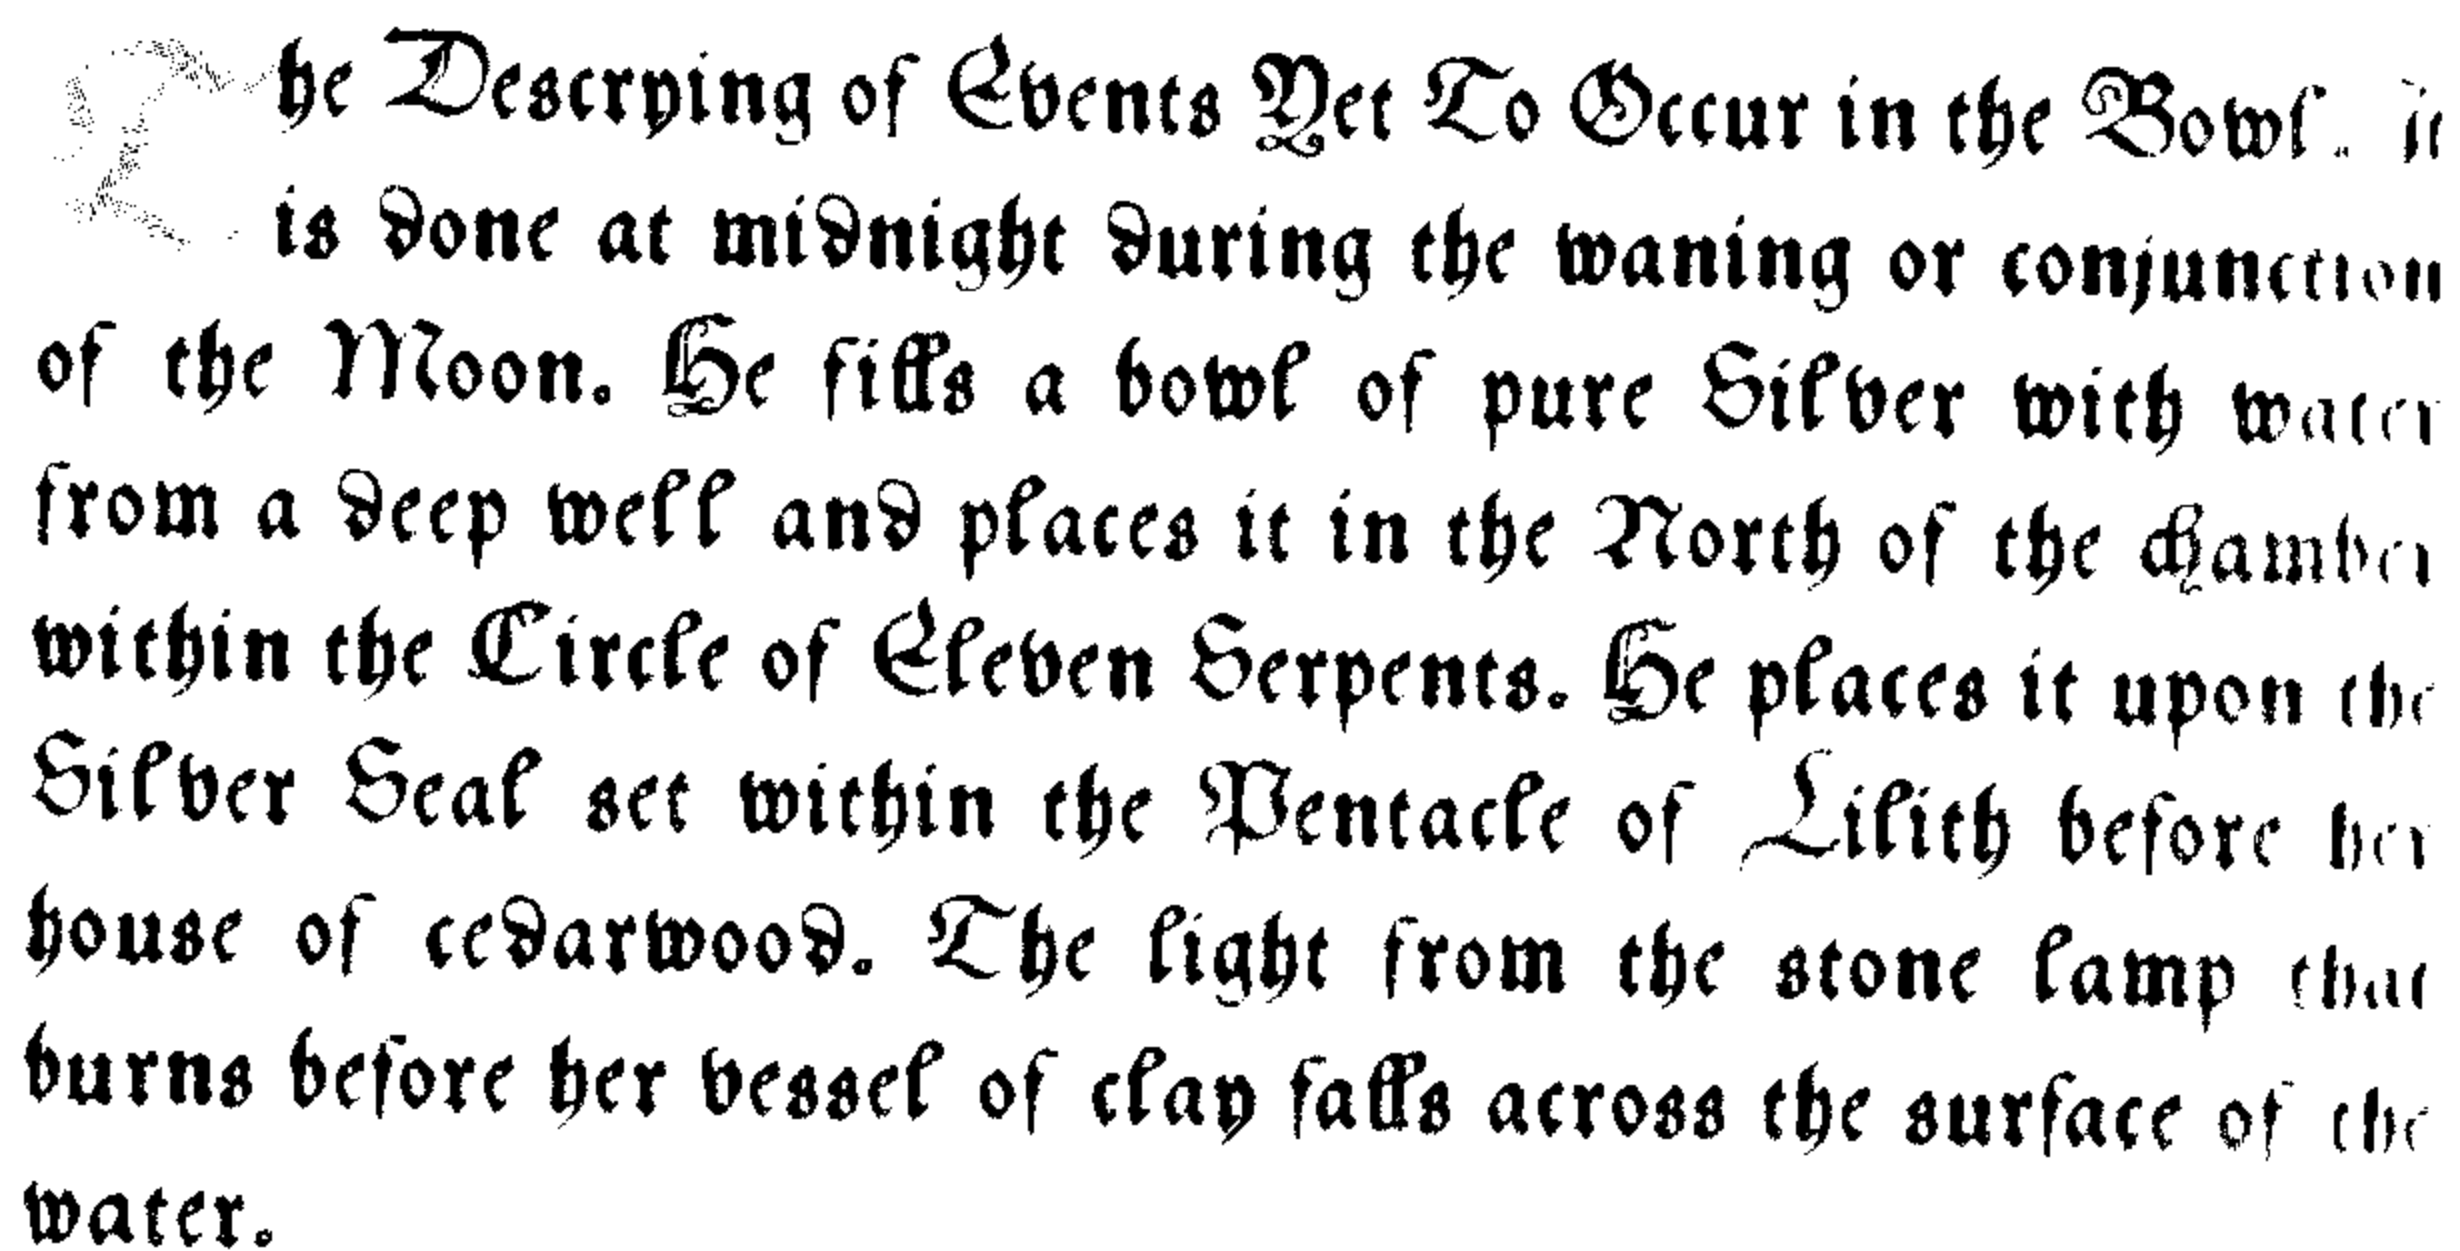 The Descrying of Events Yet To Occur in the Bowl. It
is done at midnight during the waning or conjunction
of the Moon. He fills a bowl of pure Silver with water
from a deep well and places it in the North of the chamber
within the Circle of Eleven Serpents. He places it upon the
Silver Seal set within the Pentacle of Lilith before her
house of cedarwood. The light from the stone lamp that
burns before her vessel of clay falls across the surface of the
water.